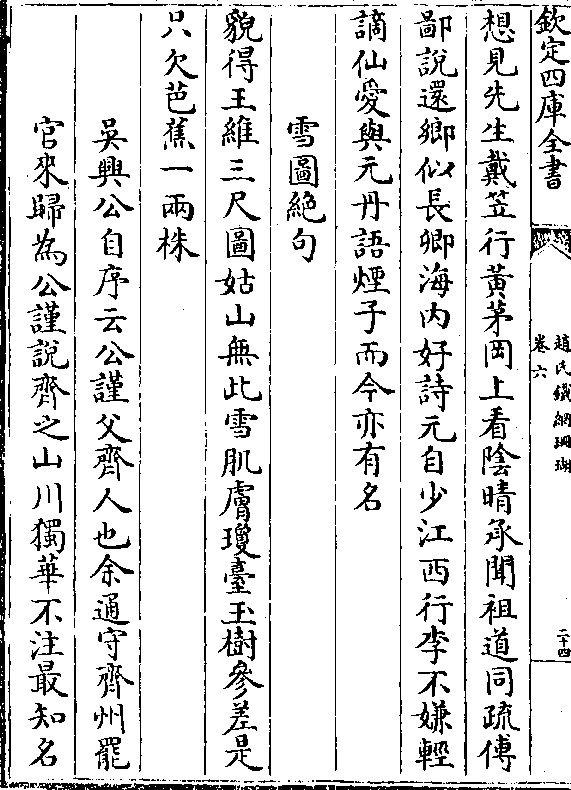 欽定四庫全書
趙氏鐵網珊瑚
卷六
二十四
想見先生戴笠行黃茅岡上看陰晴承聞祖道同疏傅
鄙說還鄉似長卿海内好詩元自少江西行李不嫌輕
謫仙愛與元丹語煙子而今亦有名
雪圖絶句
貌得王維三尺圖姑山無此雪肌膚瓊臺玉樹參差是
只欠芭蕉一兩株
吳興公自序云公謹父齊人也余通守齊州罷
官來歸為公謹說齊之山川獨華不注最知名